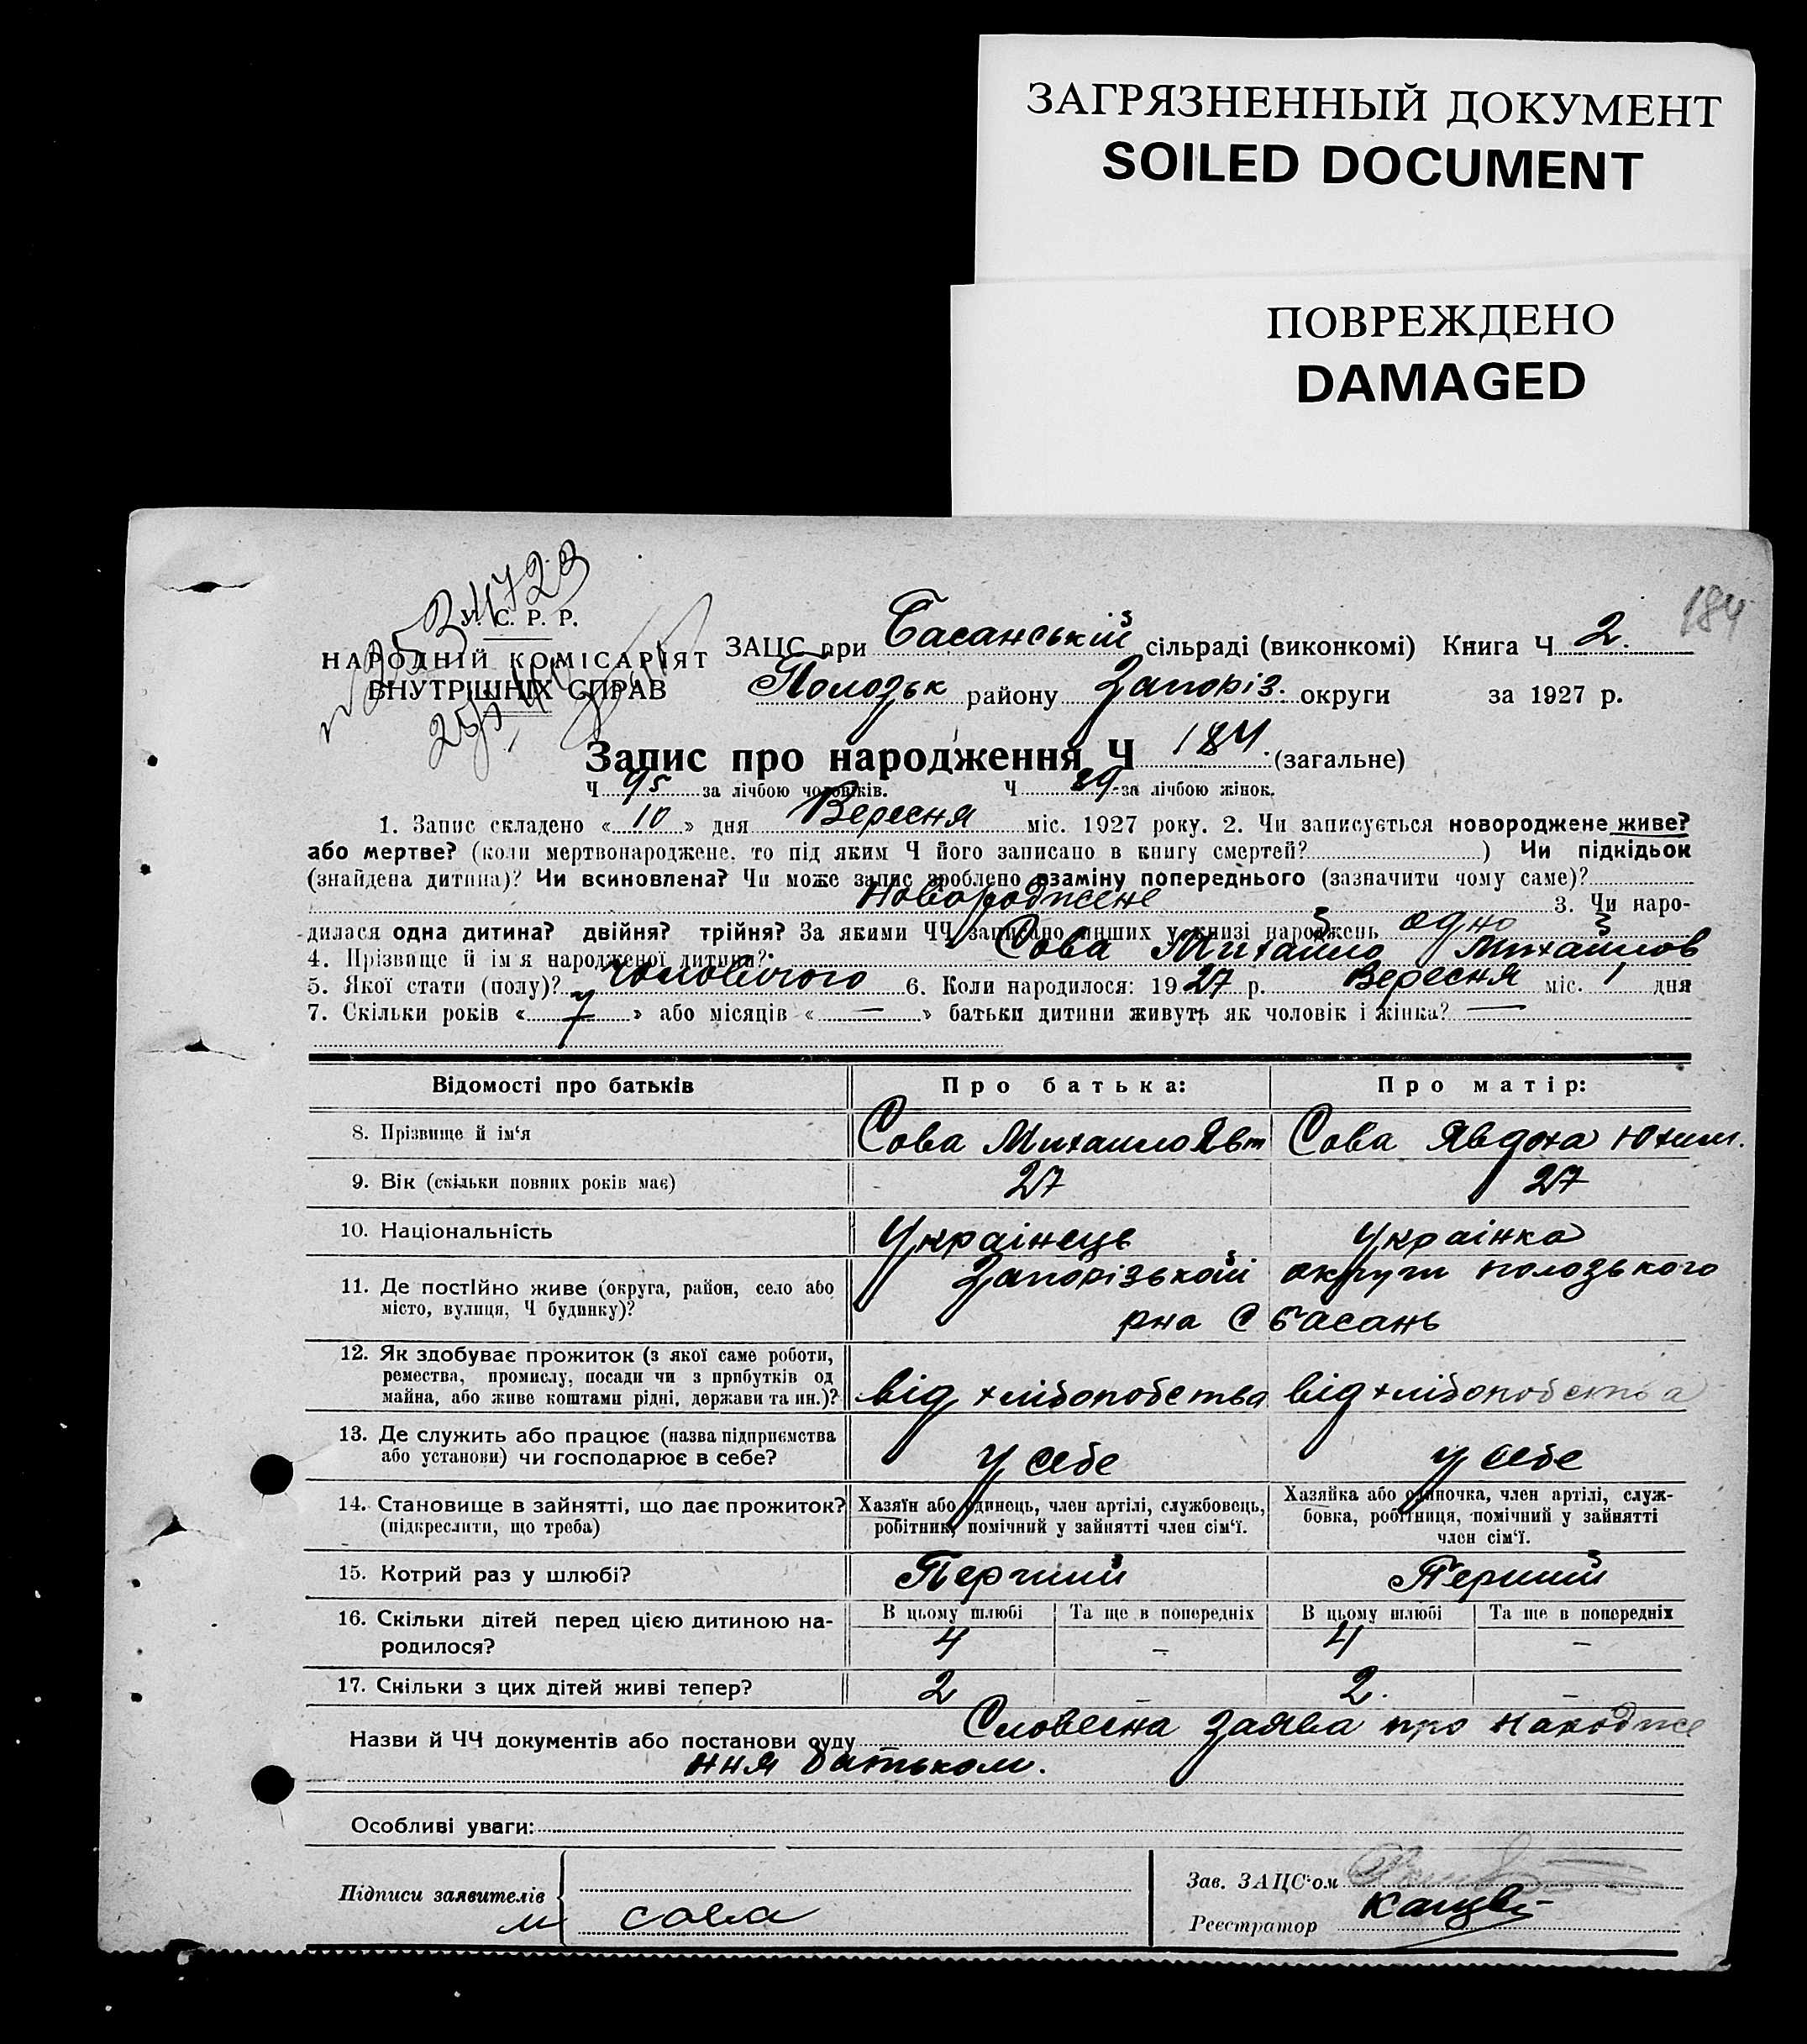 ЗАГРЯЗНЕННЫЙ ДОКУМЕНТ
SOILED DOCUMENT
ПОВРЕЖДЕНО
DAMAGED
184
У. С. Р. Р.
НАРОДНІЙ КОМІСАРІЯТ
ВНУТРІШНІХ СПРАВ
ЗАЦС при Басанській сільраді (виконкомі) Книга Ч 2.
Полозьк району Запоріз. округи за 1927 р.
Запис про народження Ч 184. (загальне)
Ч 95 за лічбою чоловіків. Ч 89 за лічбою жінок.
1. Запис складено «10» дня Вересня міс. 1927 року. 2. Чи записується новороджене живе?
або мертве? (коли мертвонароджене, то під яким Ч його записано в книгу смертей? ) Чи підкідьок
(знайдена дитина)? Чи всиновлена? Чи може запис зроблено взаміну попереднього (зазначити чому саме)?
Новороджене 3. Чи наро-
дилася одна дитина? двійня? трійня? За якими ЧЧ записано инших у книзі народжень одно
4. Прізвище й ім'я народженої дитини? Сова Михайло Михайлов
5. Якої стати (полу)? чоловічого 6. Коли народилося: 1927 р. Вересня міс. 1 дня
7. Скільки років «7» або місяців « — » батьки дитини живуть як чоловік і жінка? —
Відомості про батьків Про батька: Про матір:
8. Прізвище й ім'я Сова Михаило Явт Сова Явдоха Юхим.
9. Вік (скільки повних років має) 27 27
10. Національність Українець Українка
11. Де постійно живе (округа, район, село або Запорізькой округи полозького
місто, вулиця, Ч будинку)? рна С басань
12. Як здобуває прожиток (з якої саме роботи,
ремества, промислу, посади чи з прибутків од
майна, або живе коштами рідні, держави та ин.)? від хлібопобства від хлібопобства
13. Де служить або працює (назва підприємства
або установи) чи господарює в себе? у себе у себе
14. Становище в зайнятті, що дає прожиток? Хазяїн або одинець, член артілі, службовець, Хазяйка або одиночка, член артілі, служ-
(підкреслити, що треба) робітник, помічний у зайнятті член сім'ї. бовка, робітниця, помічний у зайнятті
член сім'ї.
15. Котрий раз у шлюбі? Перший Перший
16. Скільки дітей перед цією дитиною на- В цьому шлюбі Та ще в попередніх В цьому шлюбі Та ще в попередніх
родилося? 4 – 4 –
17. Скільки з цих дітей живі тепер? 2 – 2. –
Назви й ЧЧ документів або постанови суду Словесна заява про народже
ння батьком.
Особливі уваги:
Підписи заявителів Зав. ЗАЦС'ом
м сова Реєстратор